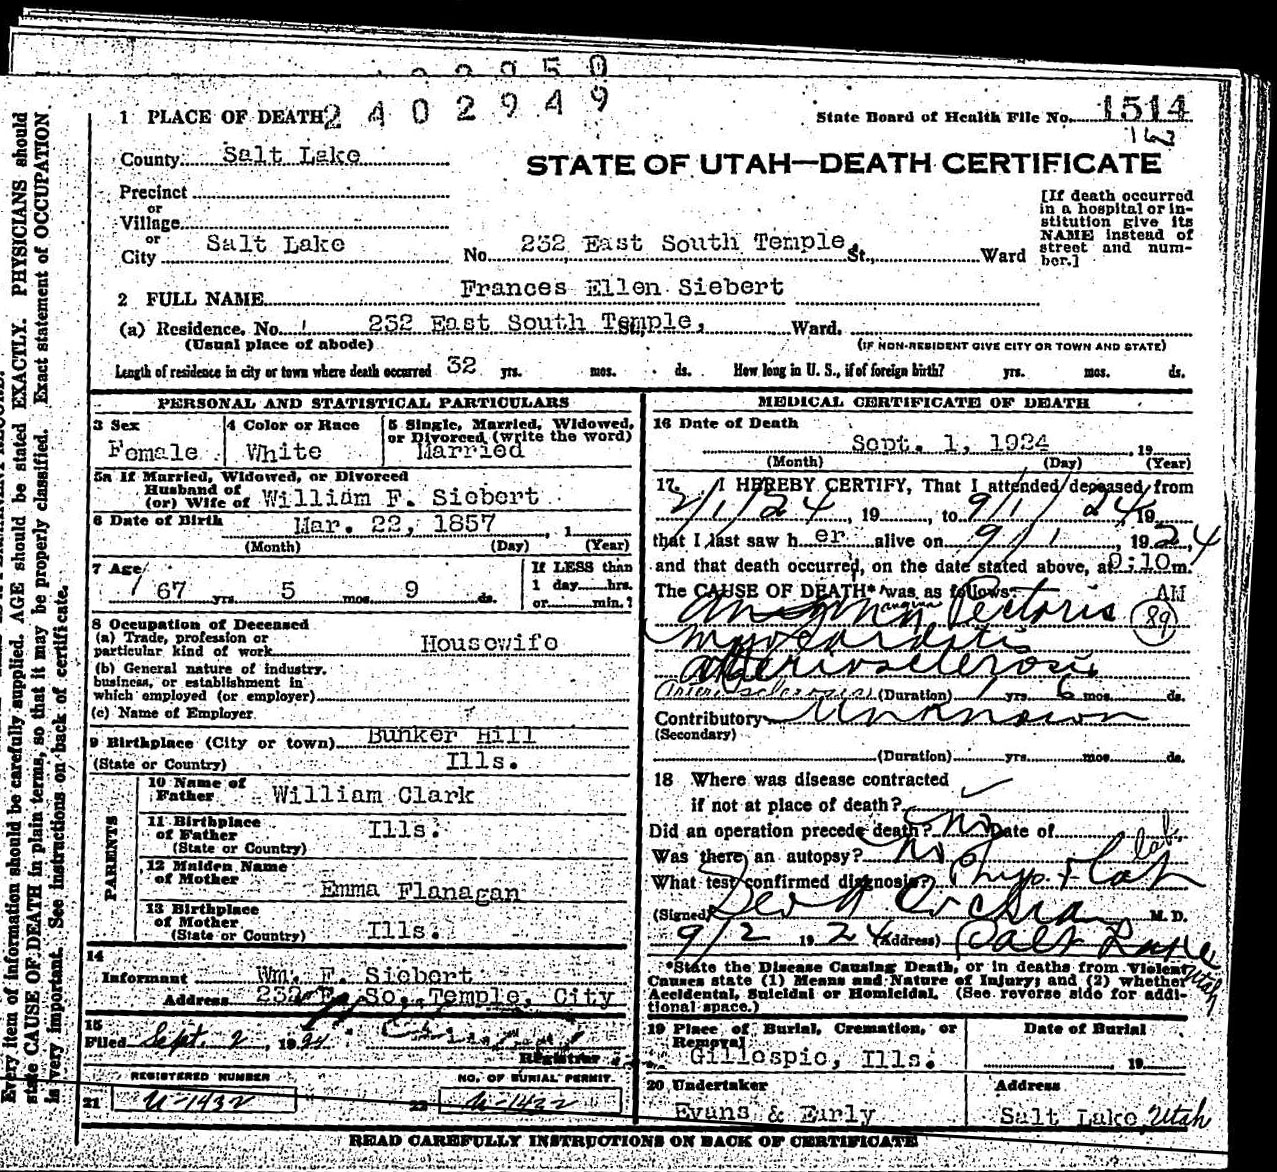 2402949
1 PLACE OF DEATH
State Board of Health File No. 1514
163
County Salt Lake
STATE OF UTAH—DEATH CERTIFICATE
Precinct
or
Village
or
City Salt Lake No. 232 East South Temple, St., Ward
[If death occurred
in a hospital or in-
stitution give its
NAME instead of
street and num-
ber.]
2 FULL NAME Frances Ellen Siebert
(a) Residence. No. 232 East South Temple, St., Ward.
(Usual place of abode) (IF NON-RESIDENT GIVE CITY OR TOWN AND STATE)
Length of residence in city or town where death occurred 32 yrs. mos. ds. How long in U. S., if of foreign birth? yrs. mos. ds.
PERSONAL AND STATISTICAL PARTICULARS
3 Sex
Female
4 Color or Race
White
5 Single, Married, Widowed,
or Divorced (write the word)
Married
5a If Married, Widowed, or Divorced
Husband of
(or) Wife of William F. Siebert
6 Date of Birth Mar. 22, 1857, 1
(Month) (Day) (Year)
7 Age 67 yrs. 5 mos. 9 ds.
If LESS than
1 day hrs.
or min.?
8 Occupation of Deceased
(a) Trade, profession or
particular kind of work Housewife
(b) General nature of industry,
business, or establishment in
which employed (or employer)
(c) Name of Employer
9 Birthplace (City or town) Bunker Hill
(State or Country) Ills.
PARENTS
10 Name of
Father William Clark
11 Birthplace
of Father Ills.
(State or Country)
12 Maiden Name
of Mother Emma Flanagan
13 Birthplace
of Mother
(State or Country) Ills.
14
Informant Wm. F. Siebert
Address 232 E. So. Temple, City
15
Filed Sept. 2, 1924
Registrar
REGISTERED NUMBER
21 U-1432
NO. OF BURIAL PERMIT.
22 U-1432
MEDICAL CERTIFICATE OF DEATH
16 Date of Death
Sept. 1, 1924 19
(Month) (Day) (Year)
17 I HEREBY CERTIFY, That I attended deceased from
2/1/24, 19, to 9/1/24 19
that I last saw h er alive on 9/1, 1924,
and that death occurred, on the date stated above, at m.
AM
The CAUSE OF DEATH* was as follows:
angina Pectoris
89
Myocarditis
arteriosclerosis
Arteriosclerosis (Duration) 1 yrs. 6 mos. ds.
Contributory Unknown
(Secondary)
(Duration) yrs. mos. ds.
18 Where was disease contracted
if not at place of death?
Did an operation precede death? no Date of
Was there an autopsy? no
What test confirmed diagnosis? Phys. + Lab
lab.
(Signed) Cochran M. D.
9/2 1924 (Address) Salt Lake
Utah
*State the Disease Causing Death, or in deaths from Violent
Causes state (1) Means and Nature of Injury; and (2) whether
Accidental, Suicidal or Homicidal. (See reverse side for addi-
tional space.)
19 Place of Burial, Cremation, or
Removal
Gillespie, Ills.
Date of Burial
19
20 Undertaker
Evans & Early
Address
Salt Lake, Utah
READ CAREFULLY INSTRUCTIONS ON BACK OF CERTIFICATE
Every item of information should be carefully supplied. AGE should be stated EXACTLY. PHYSICIANS should
state CAUSE OF DEATH in plain terms, so that it may be properly classified. Exact statement of OCCUPATION
is very important. See instructions on back of certificate.